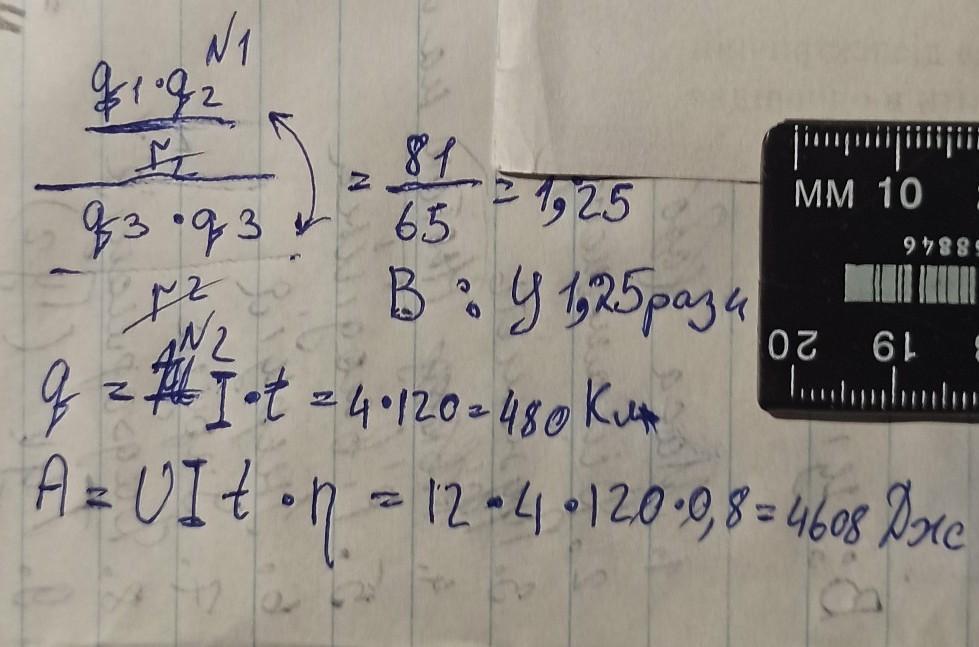 N1
q1·q2
r2
q3·q3
r2
= 81/65 = 1,25
В: У 1,25 рази
N2
q = I·t = 4·120 = 480 Кл
A = UIt·η = 12·4·120·0,8 = 4608 Дж
ММ 10
68846
20 19